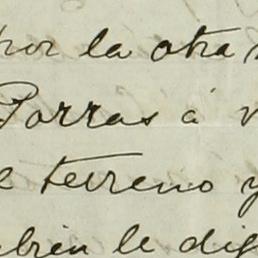 por la otra
Porras á
terreno y
le dig